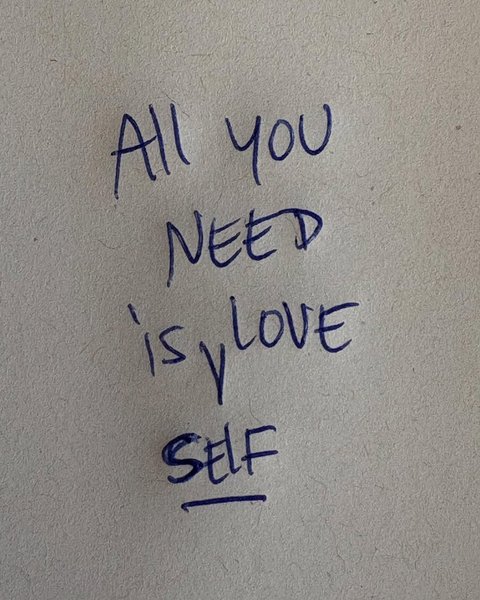 All YOU
NEED
is LOVE
SELF